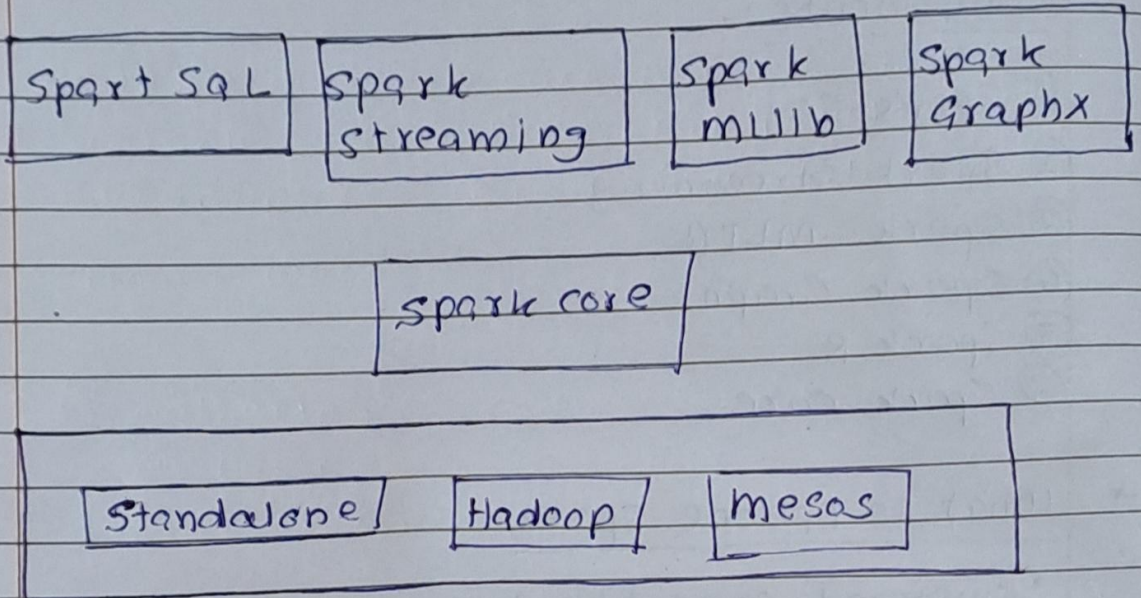 Spart SQL
Spark
streaming
Spark
mllib
Spark
Graphx
Spark core
Standalone
Hadoop
mesos